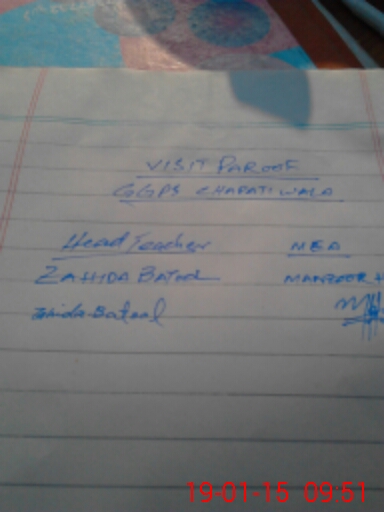 VISIT PAROOF
GGPS CHAPATIWALA
Head Teacher MEA
ZAHIDA BATOOL MANZOOR
Zahida Batool
19-01-15 09:51